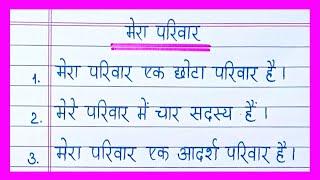 मेरा परिवार
1. मेरा परिवार एक छोटा परिवार है।
2. मेरे परिवार में चार सदस्य हैं।
3. मेरा परिवार एक आदर्श परिवार है।